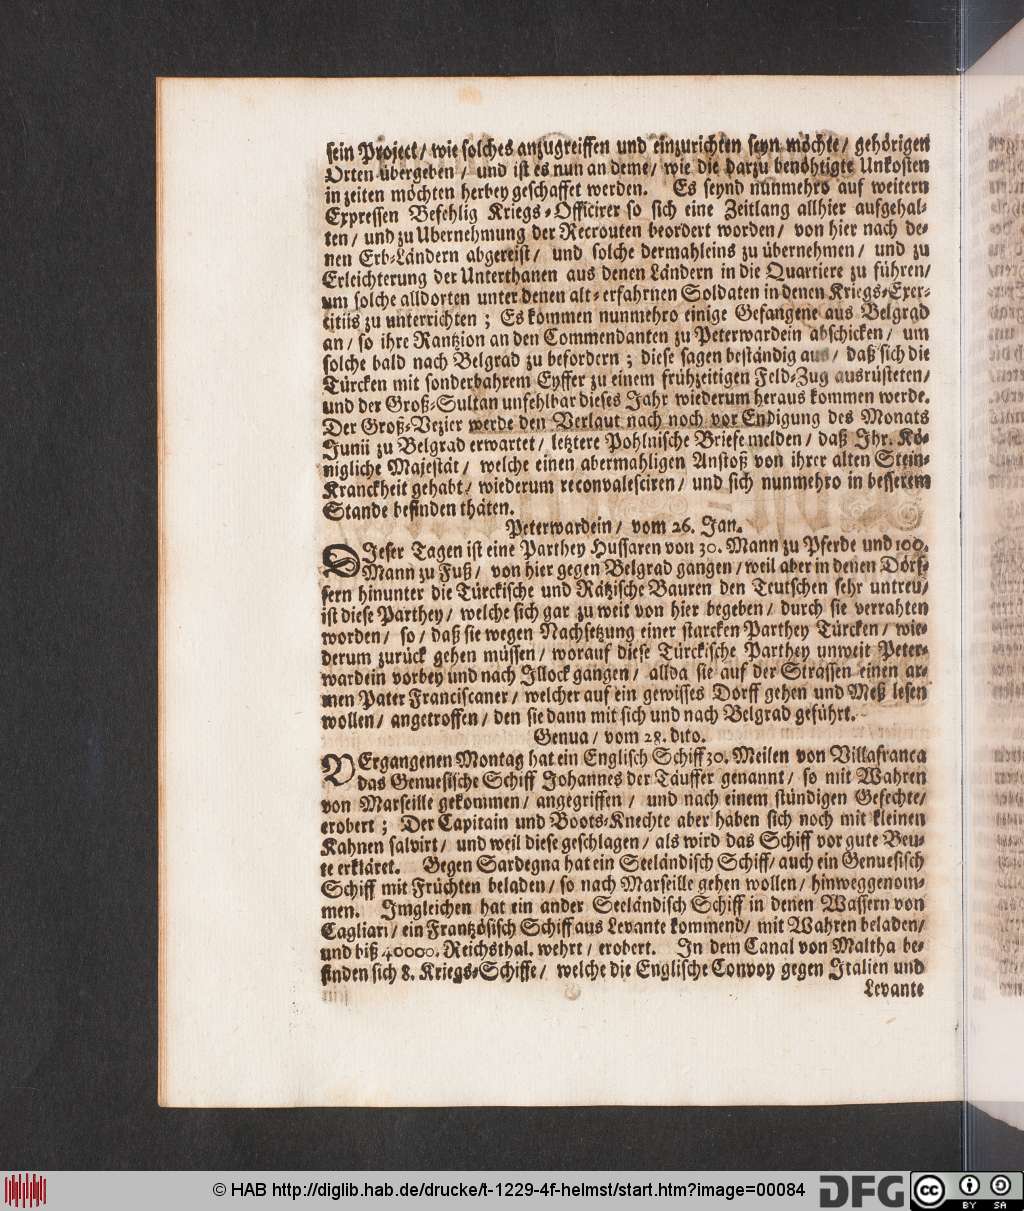 sein Project / wie solches anzugreiffen und einzurichten seyn möchte / gehörigen
Orten übergeben / und ist es nun an deme / wie die darzu benöhtigte Unkosten
in zeiten möchten herbey geschaffet werden. Es seynd nunmehro auf weitern
Expressen Befehlig Kriegs-Officirer so sich eine Zeitlang allhier aufgehal-
ten / und zu Ubernehmung der Recrouten beordert worden / von hier nach de-
nen Erb-Ländern abgereist / und solche dermahleins zu übernehmen / und zu
Erleichterung der Unterthanen aus denen Ländern in die Quartiere zu führen /
um solche alldorten unter denen alt-erfahrnen Soldaten in denen Kriegs-Exer-
citiis zu unterrichten ; Es kommen nunmehro einige Gefangene aus Belgrad
an / so ihre Rantzion an den Commendanten zu Peterwardein abschicken / um
solche bald nach Belgrad zu befördern ; diese sagen beständig aus / daß sich die
Türcken mit sonderbahrem Eyffer zu einem frühzeitigen Feld-Zug ausrüsteten /
und der Groß-Sultan unfehlbar dieses Jahr wiederum heraus kommen werde.
Der Groß-Vezier werde den Verlaut nach noch vor Endigung des Monats
Junii zu Belgrad erwartet / letztere Pohlnische Briefe melden / daß Ihr. Kö-
nigliche Majestät / welche einen abermahligen Anstoß von ihrer alten Stein-
Kranckheit gehabt / wiederum reconvalesciren / und sich nunmehro in besserem
Stande befinden thäten.
Peterwardein / vom 26. Jan.
DIeser Tagen ist eine Parthey Hussaren von 30. Mann zu Pferde und 100.
Mann zu Fuß / von hier gegen Belgrad gangen / weil aber in denen Dörf-
fern hinunter die Türckische und Rätzische Bauren den Teutschen sehr untreu /
ist diese Parthey / welche sich gar zu weit von hier begeben / durch sie verrahten
worden / so / daß sie wegen Nachsetzung einer starcken Parthey Türcken / wie-
derum zurück gehen müssen / worauf diese Türckische Parthey unweit Peter-
wardein vorbey und nach Illock gangen / allda sie auf der Strassen einen ar-
men Pater Franciscaner / welcher auf ein gewisses Dorff gehen und Meß lesen
wollen / angetroffen / den sie dann mit sich und nach Belgrad geführt.
Genua / vom 28. dito.
VErgangenen Montag hat ein Englisch Schiff 30. Meilen von Villafranca
das Genuesische Schiff Johannes der Täuffer genannt / so mit Wahren
von Marseille gekommen / angegriffen / und nach einem stündigen Gefechte /
erobert ; Der Capitain und Boots-Knechte aber haben sich noch mit kleinen
Kahnen salvirt / und weil diese geschlagen / als wird das Schiff vor gute Beu-
te erkläret. Gegen Sardegna hat ein Seeländisch Schiff / auch ein Genuesisch
Schiff mit Früchten beladen / so nach Marseille gehen wollen / hinweggenom-
men. Imgleichen hat ein ander Seeländisch Schiff in denen Wassern von
Cagliari / ein Frantzösisch Schiff aus Levante kommend / mit Wahren beladen /
und biß 40000. Reichsthal. wehrt / erobert. In dem Canal von Maltha be-
finden sich 8. Kriegs-Schiffe / welche die Englische Convoy gegen Italien und
Levante
© HAB http://diglib.hab.de/drucke/t-1229-4f-helmst/start.htm?image=00084
DFG
cc BY SA